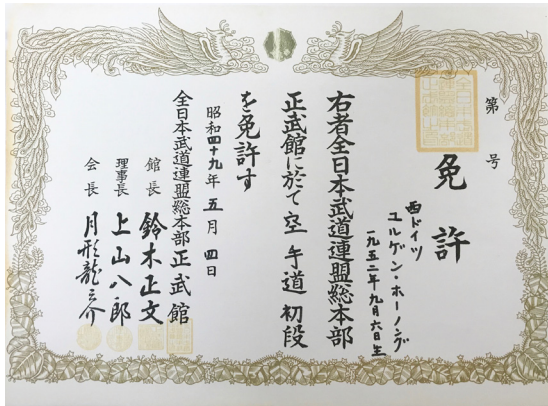 第 号
免許
西ドイツ
ユルゲン・ホーノング
一九五二年九月六日生
右者全日本武道連盟総本部
正武館に於て空手道初段
を免許す
昭和四十九年五月四日
全日本武道連盟総本部正武館
館長 鈴木正文
理事長 上山八郎
会長 月形龍之介